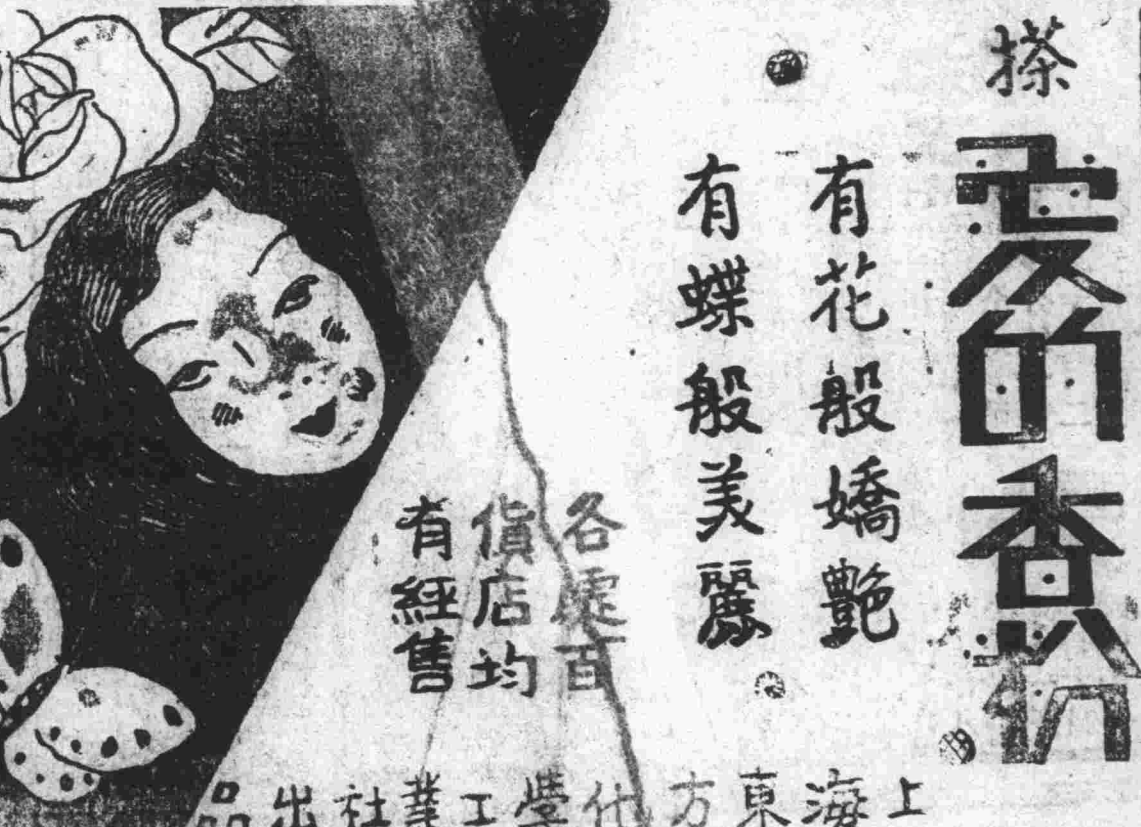 搽
愛的香粉
有花般嬌艷
有蝶般美麗
各處百
貨店均
有經售
上海東方化學工業社出品